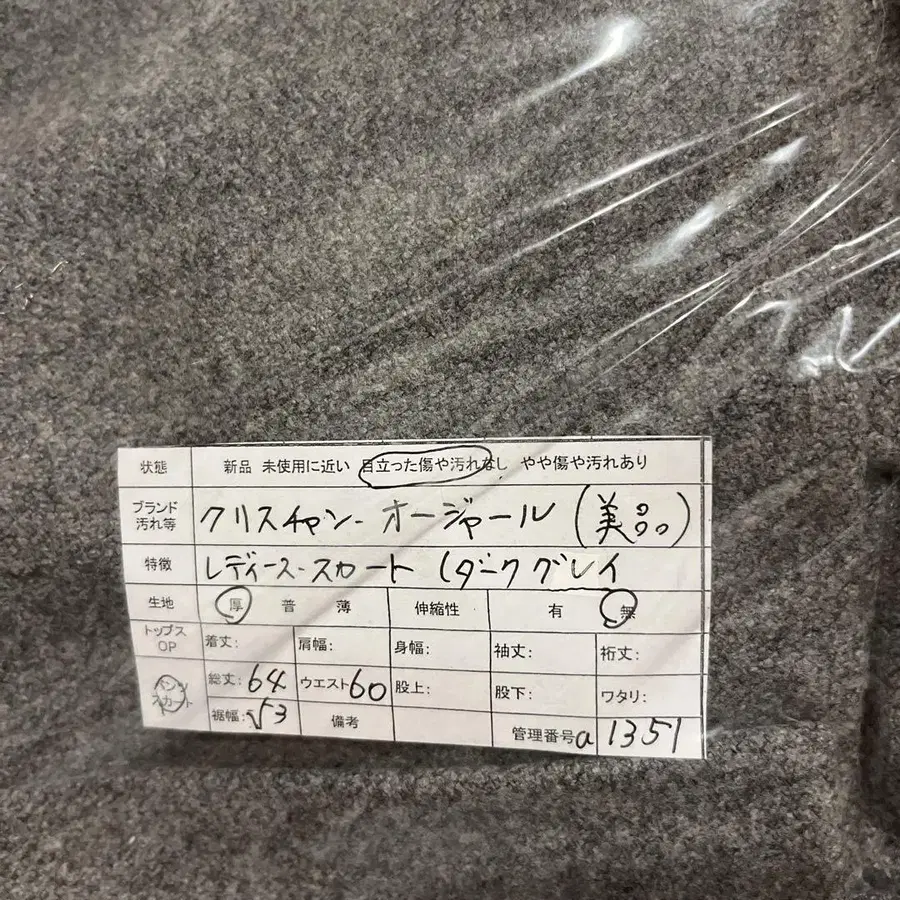 状態 新品 未使用に近い 目立った傷や汚れなし やや傷や汚れあり
ブランド 汚れ等 クリスチャン・オージャール (美品)
特徴 レディース・スカート (ダークグレイ
生地 厚 普 薄 伸縮性 有 無
トップス OP 着丈: 肩幅: 身幅: 袖丈: 裄丈:
パンツ スカート 総丈: 64 ウエスト 60 股上: 股下: ワタリ:
裾幅: 53 備考 管理番号 a 1351